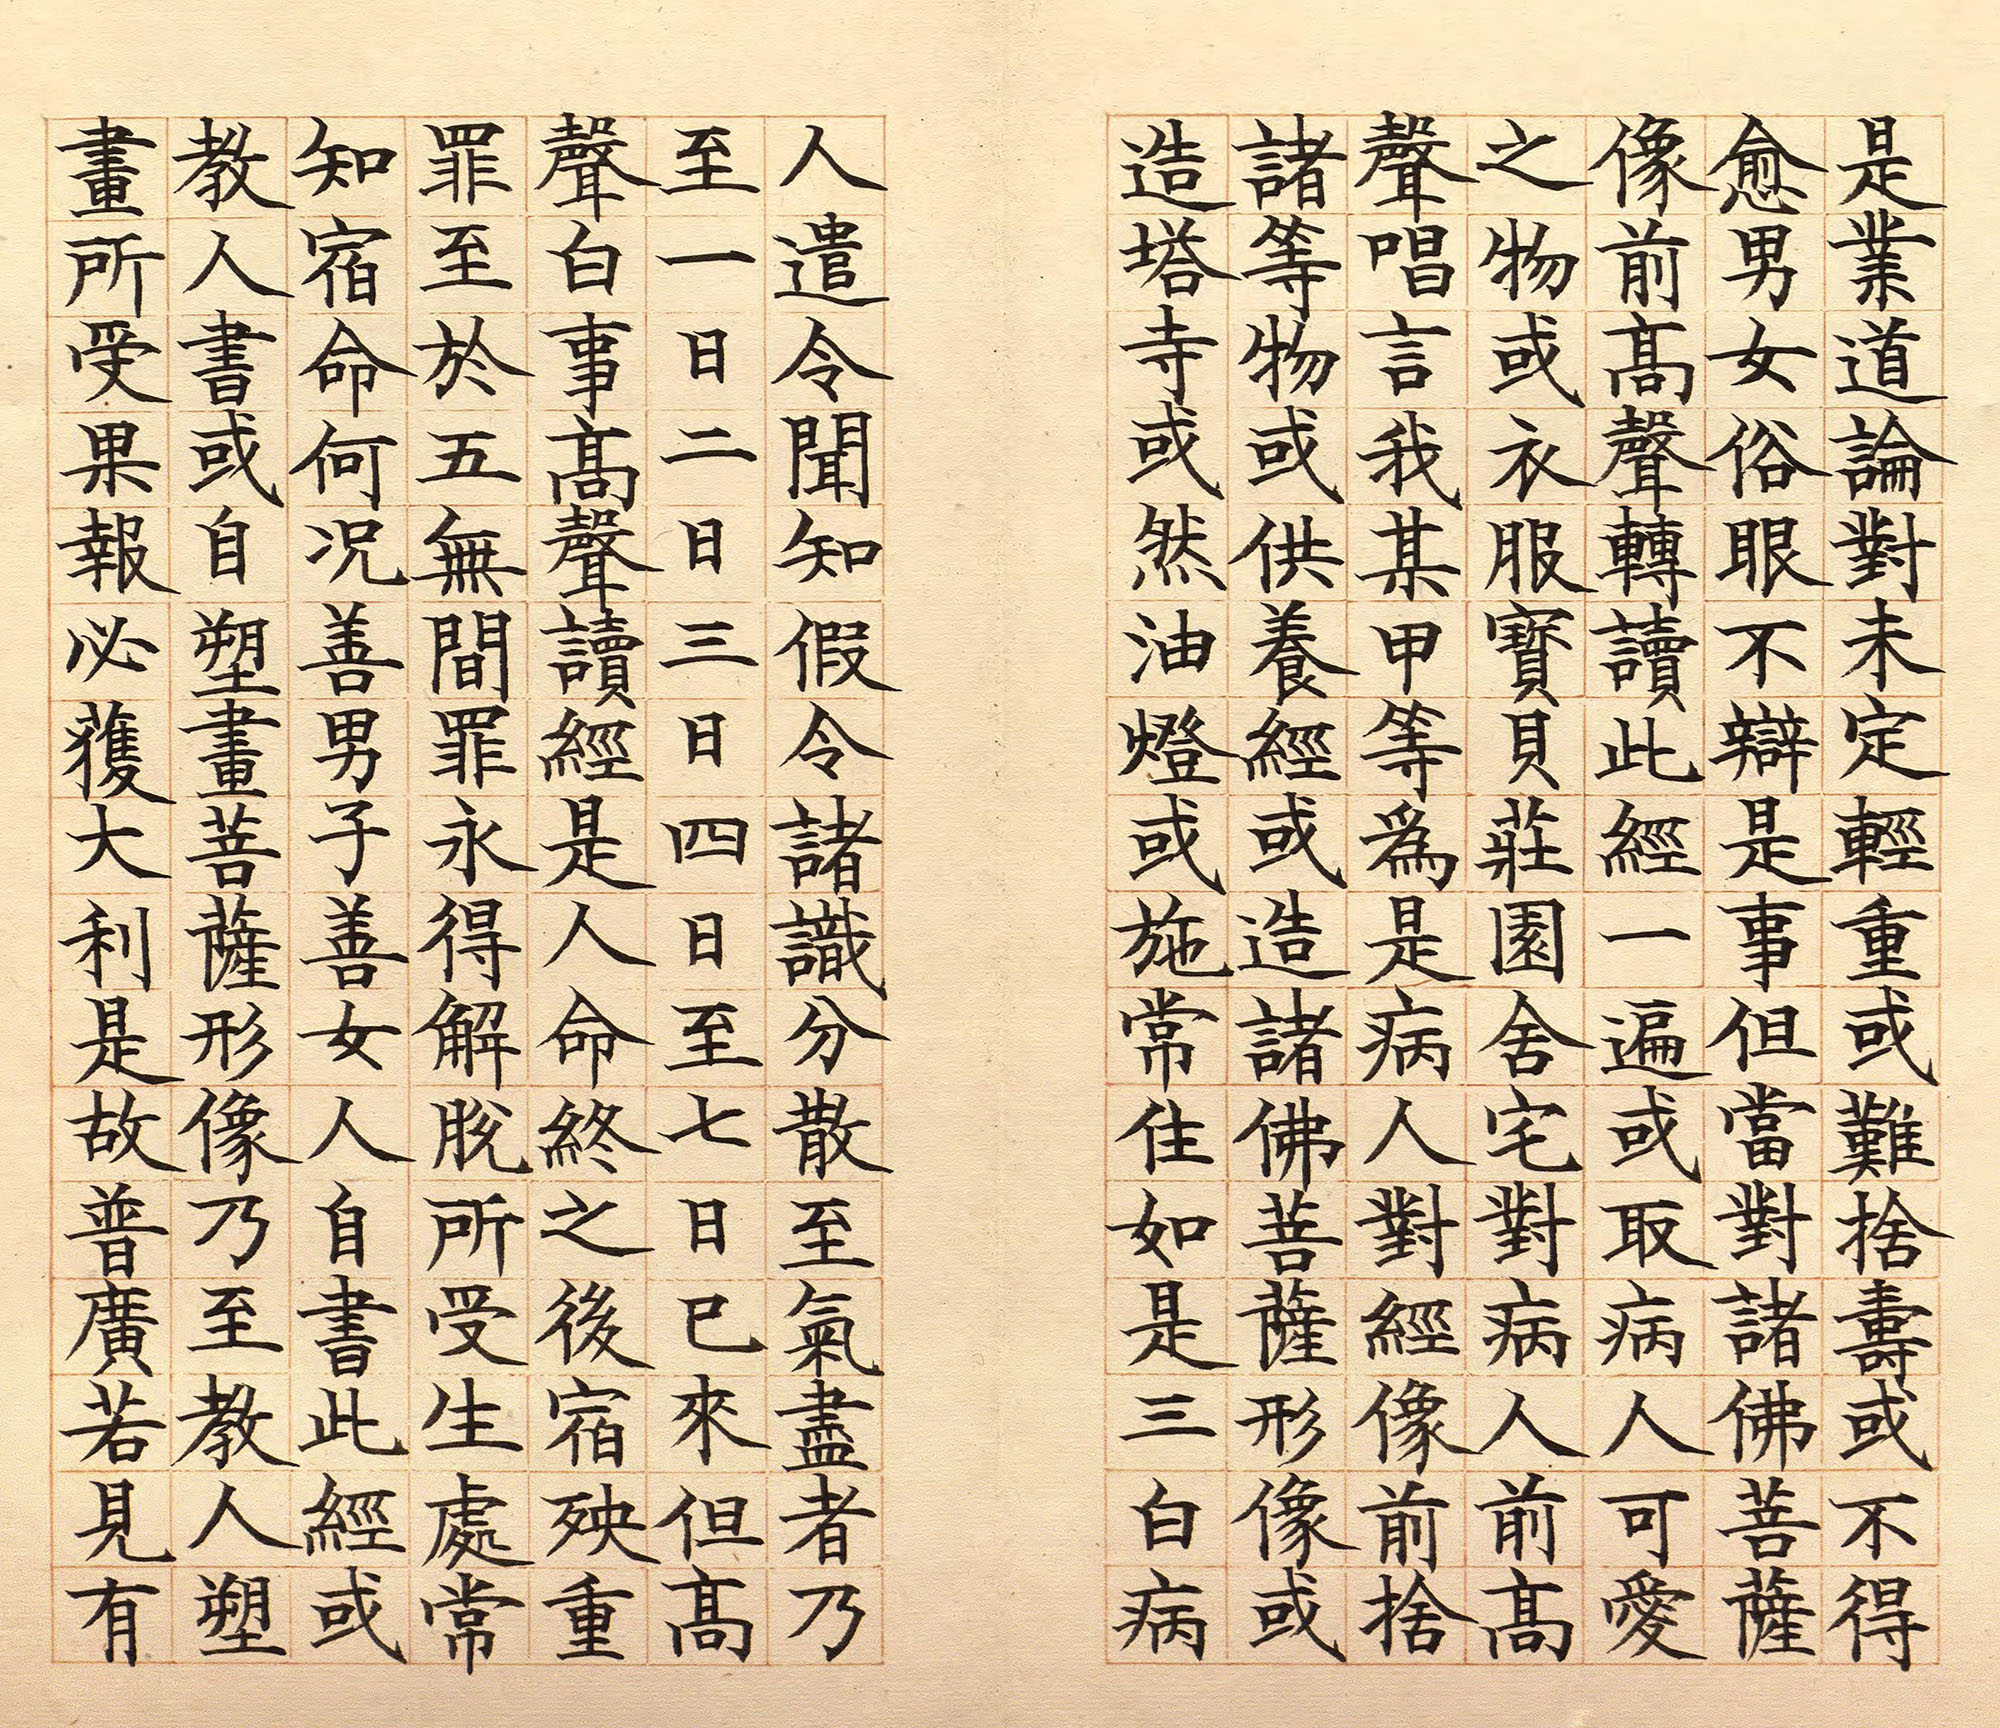 是業道論對未定輕重或難捨壽或不得
愈男女俗眼不辯是事但當對諸佛菩薩
像前髙聲轉讀此經一遍或取病人可愛
之物或衣服寳貝莊園舍宅對病人前髙
聲唱言我某甲等爲是病人對經像前捨
諸等物或供養經或造諸佛菩薩形像或
造塔寺或然油燈或施常住如是三白病
人遣令聞知假令諸識分散至氣盡者乃
至一日二日三日四日至七日已來但髙
聲白事髙聲讀經是人命終之後宿殃重
罪至於五無間罪永得解脫所受生處常
知宿命何况善男子善女人自書此經或
教人書或自塑畫菩薩形像乃至教人塑
畫所受果報必獲大利是故普廣若見有